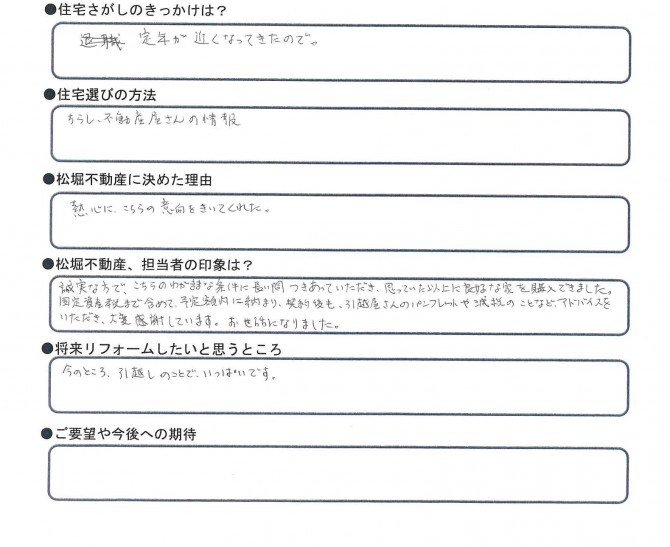 ●住宅さがしのきっかけは？
退職 定年が近くなってきたので。
●住宅選びの方法
ちらし、不動産屋さんの情報
●松堀不動産に決めた理由
熱心に、こちらの意向をきいてくれた。
●松堀不動産、担当者の印象は？
誠実な方で、こちらのわがままな条件に長い間つきあっていただき、思っていた以上に良好な家を購入できました。
固定資産税まで含めて、予定額内に納まり、契約後も、引越屋さんのパンフレットや減税のことなど、アドバイスを
いただき、大変感謝しています。お世話になりました。
●将来リフォームしたいと思うところ
今のところ、引越しのことで、いっぱいです。
●ご要望や今後への期待